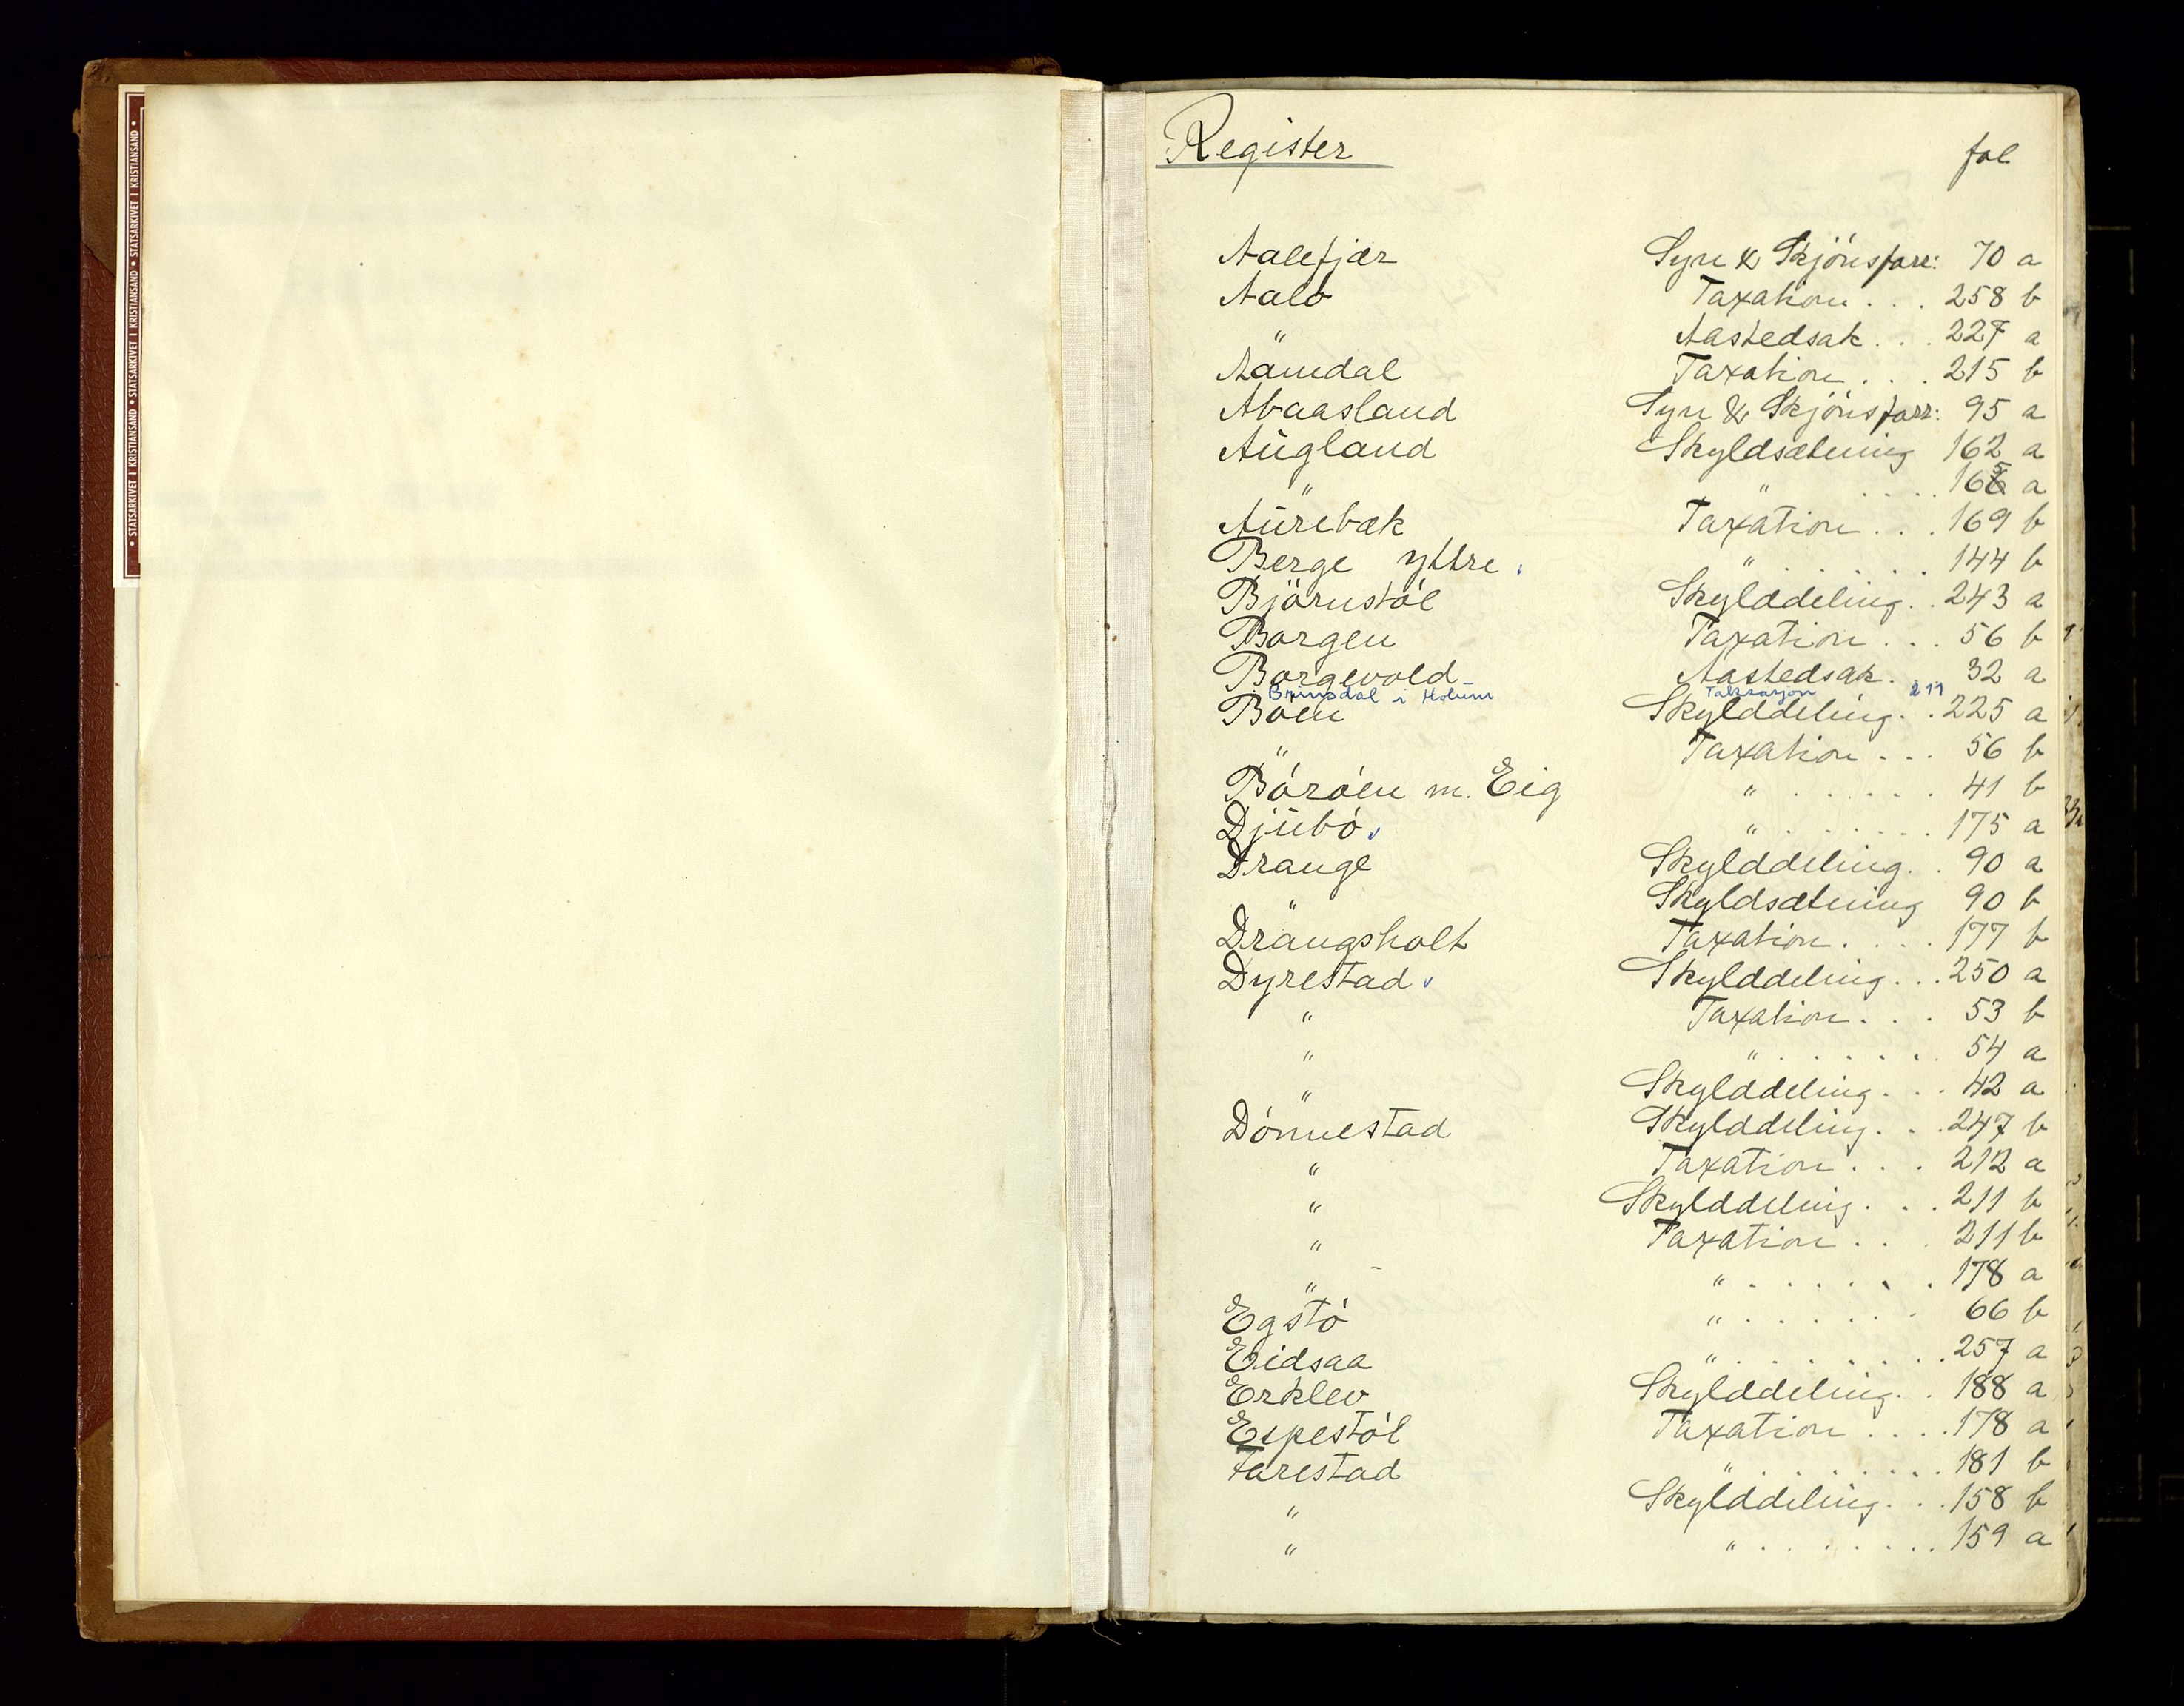 • STATSARKIVET I KRISTIANSAND • STATSARKIVET I KRISTIANSAND • STATSARKIVET I KRISTIANSAND •
Register fol
Aalefjær Syn & Skjönsforr: 70 a
Aalo Taxation . . . 258 b
" Aastedsak . . . 227 a
Aamdal Taxation . . . 215 b
Abaasland Syn & Skjönsforr: 95 a
Augland Skyldsætning 162 a
" " . . . . 165 a
Aurebæk Taxation . . . 169 b
Berge yttre " . . . . . . 144 b
Björnstöl Skylddeling . . 243 a
Borgen Taxation . . . 56 b
Borgevold Aastedsak . 32 a
Brinsdal i Holum Taksasjon 211
Böen Skylddeling . . 225 a
" Taxation . . . 56 b
Böröen m. Eig " . . . . . . 41 b
Djubö " . . . . . . 175 a
Drange Skylddeling . . 90 a
" Skyldsætning 90 b
Drangsholt Taxation . . . . 177 b
Dyrestad Skylddeling . . . 250 a
" Taxation . . . 53 b
" " . . . . . . 54 a
" Skylddeling . . . 42 a
Dönnestad Skylddeling . . . 247 b
" Taxation . . . 212 a
" Skylddeling . . . 211 b
" Taxation . . . 211 b
" " . . . . . . 178 a
Egstö " . . . . . . 66 b
Eidsaa " . . . . . . . 257 a
Erklev Skylddeling . . 188 a
Espestöl Taxation . . . . 178 a
Farestad " . . . . . . . 181 b
" Skylddeling . . . 158 b
" " . . . . . . . 159 a